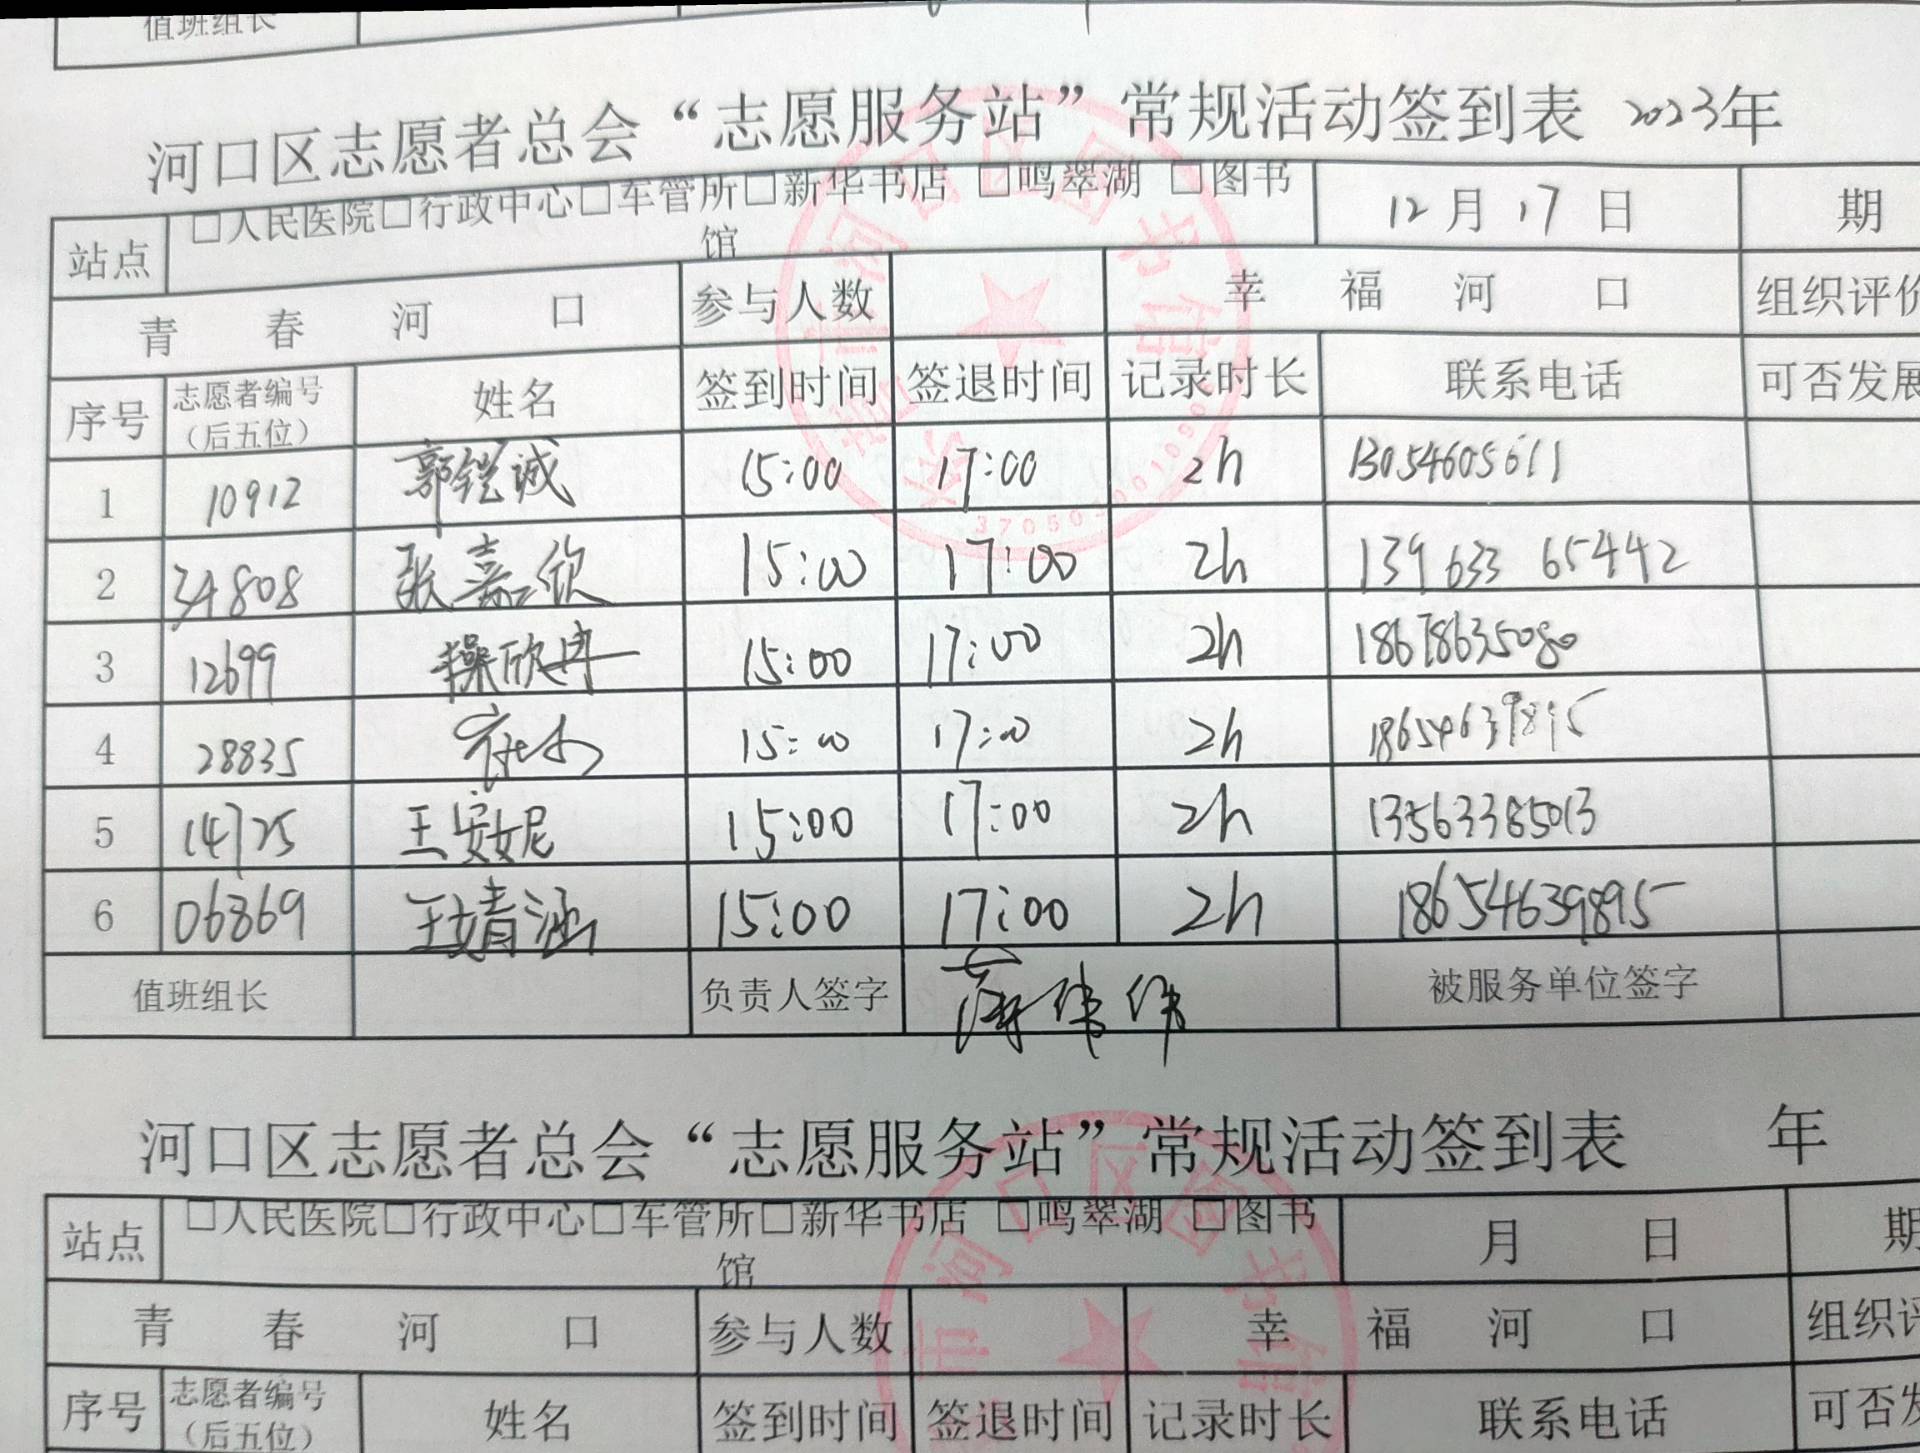 值班组长
河口区志愿者总会“志愿服务站”常规活动签到表 2023年
站点 □人民医院□行政中心□车管所□新华书店 □鸣翠湖 □图书馆 12月17日 期
青春河口 参与人数 幸福河口 组织评价
序号 志愿者编号（后五位） 姓名 签到时间 签退时间 记录时长 联系电话 可否发展
1 10912 郭铠诚 15:00 17:00 2h 13054605611
2 34808 张嘉欣 15:00 17:00 2h 139 633 65442
3 12699 操欣冉 15:00 17:00 2h 18678635080
4 28835 15:00 17:00 2h 18654639895
5 14725 王安妮 15:00 17:00 2h 13563385013
6 06869 王婧涵 15:00 17:00 2h 18654639895
值班组长 负责人签字 薛伟伟 被服务单位签字
河口区志愿者总会“志愿服务站”常规活动签到表 年
站点 □人民医院□行政中心□车管所□新华书店 □鸣翠湖 □图书馆 月 日 期
青春河口 参与人数 幸福河口 组织评
序号 志愿者编号（后五位） 姓名 签到时间 签退时间 记录时长 联系电话 可否发